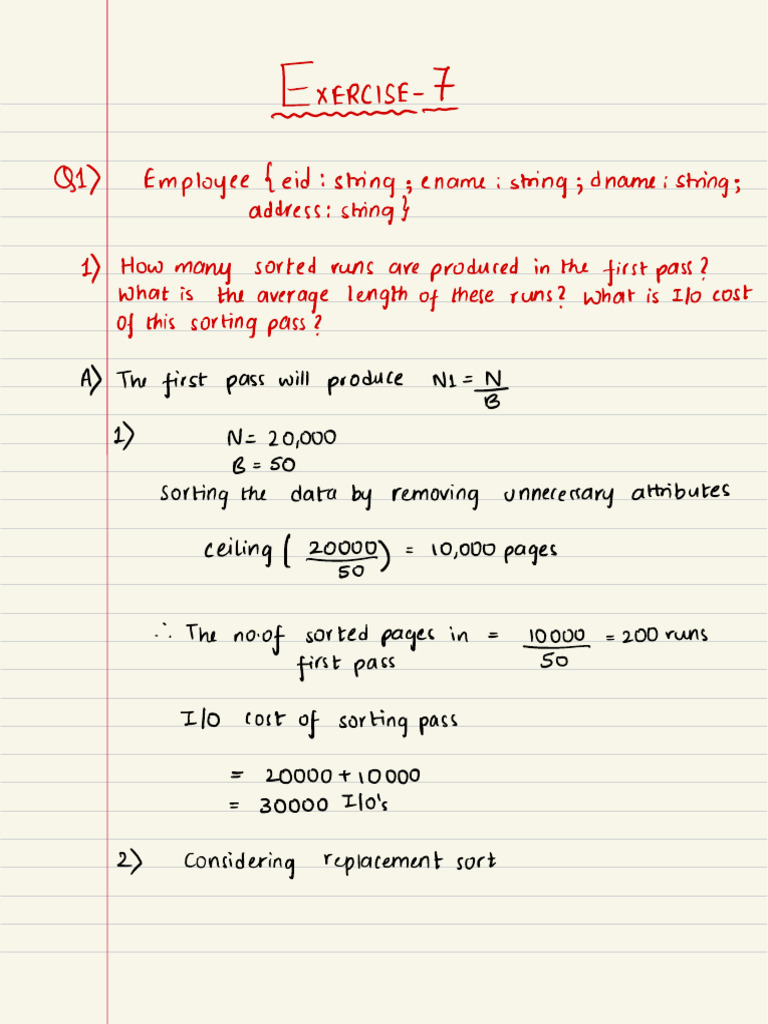 EXERCISE-7
Q1) Employee {eid: string; ename: string; dname: string;
address: string}
1) How many sorted runs are produced in the first pass?
What is the average length of these runs? What is I/o cost
of this sorting pass?
A) The first pass will produce N1 = N/B
1) N = 20,000
B = 50
Sorting the data by removing unnecessary attributes
ceiling (20000/50) = 10,000 pages
∴ The no.of sorted pages in = 10000/50 = 200 runs
first pass
I/O cost of sorting pass
= 20000 + 10000
= 30000 I/o's
2) Considering replacement sort